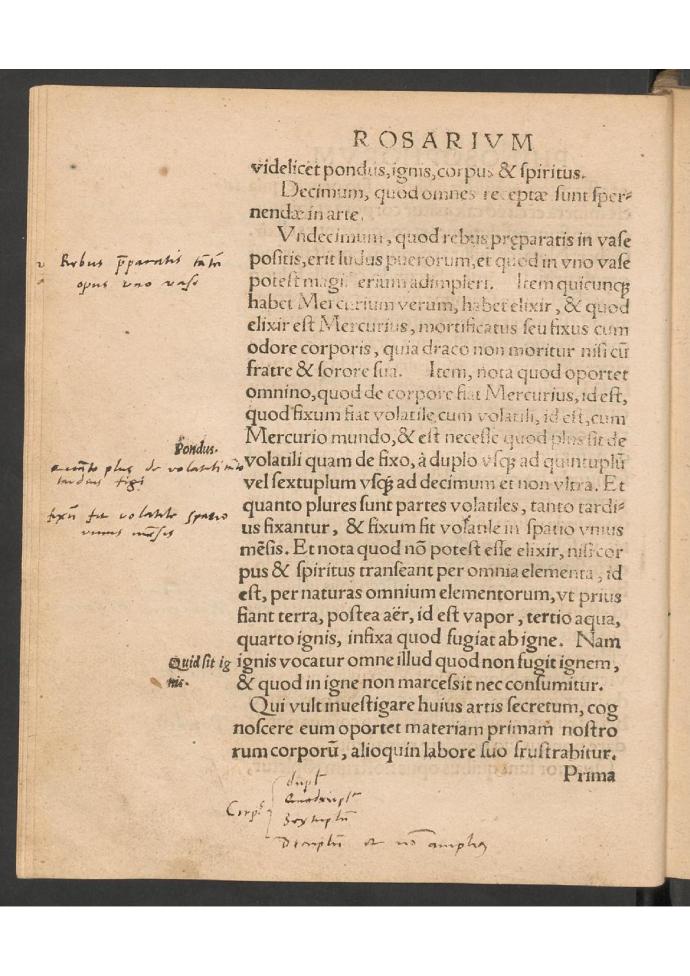 ROSARIVM
videlicet pondus, ignis, corpus & spiritus.
Decimum, quod omnes receptæ sunt sper-
nendæ in arte.
Vndecimum, quod rebus preparatis in vase
positis, erit ludus puerorum, et quod in vno vase
potest magi erium adimpleri. Item quicunqꝫ
habet Mercurium verum, habet elixir, & quod
elixir est Mercurius, mortificatus seu fixus cum
odore corporis, quia draco non moritur nisi cū
fratre & sorore sua. Item, nota quod oportet
omnino, quod de corpore fiat Mercurius, id est,
quod fixum fiat volatile cum volatili, id est, cum
Mercurio mundo, & est necesse quod plus sit de
volatili quam de fixo, à duplo vsqꝫ ad quintuplū
vel sextuplum vsqꝫ ad decimum et non vltra. Et
quanto plures sunt partes volatiles, tanto tardi-
us fixantur, & fixum fit volatile in spatio vnius
mēsis. Et nota quod nō potest esse elixir, nisi cor
pus & spiritus transeant per omnia elementa, id
est, per naturas omnium elementorum, vt prius
fiant terra, postea aër, id est vapor, tertio aqua,
quarto ignis, infixa quod fugiat ab igne. Nam
ignis vocatur omne illud quod non fugit ignem,
& quod in igne non marcessit nec consumitur.
Qui vult inuestigare huius artis secretum, cog
noscere eum oportet materiam primam nostro
rum corporū, alioquin labore suo frustrabitur.
Prima
Rebus p̄paratis
opus vno vase
Pondus.
plus de volatili
fixū fit volatile spatio
Quid sit ig
nis.
Corp
dupl
Quadrupl
Sextuplū
Decuplū et nō